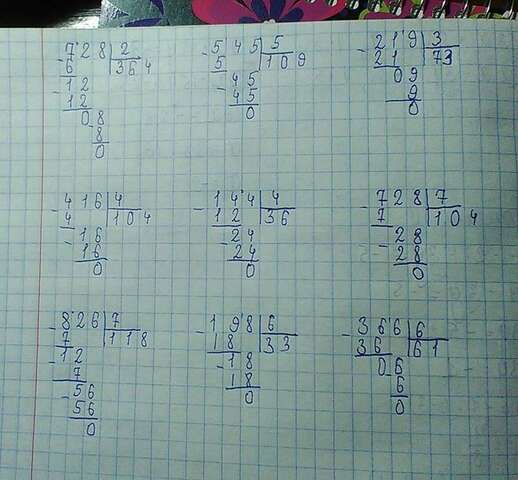 728 2 545 5 219 3
6 364 5 109 21 73
12 45 09
12 45 9
08 0 0
8
0
416 4 144 4 728 7
4 104 12 36 7 104
16 24 28
16 24 28
0 0 0
826 7 198 6 366 6
7 118 18 33 36 61
12 18 06
7 18 6
56 0 0
56
0